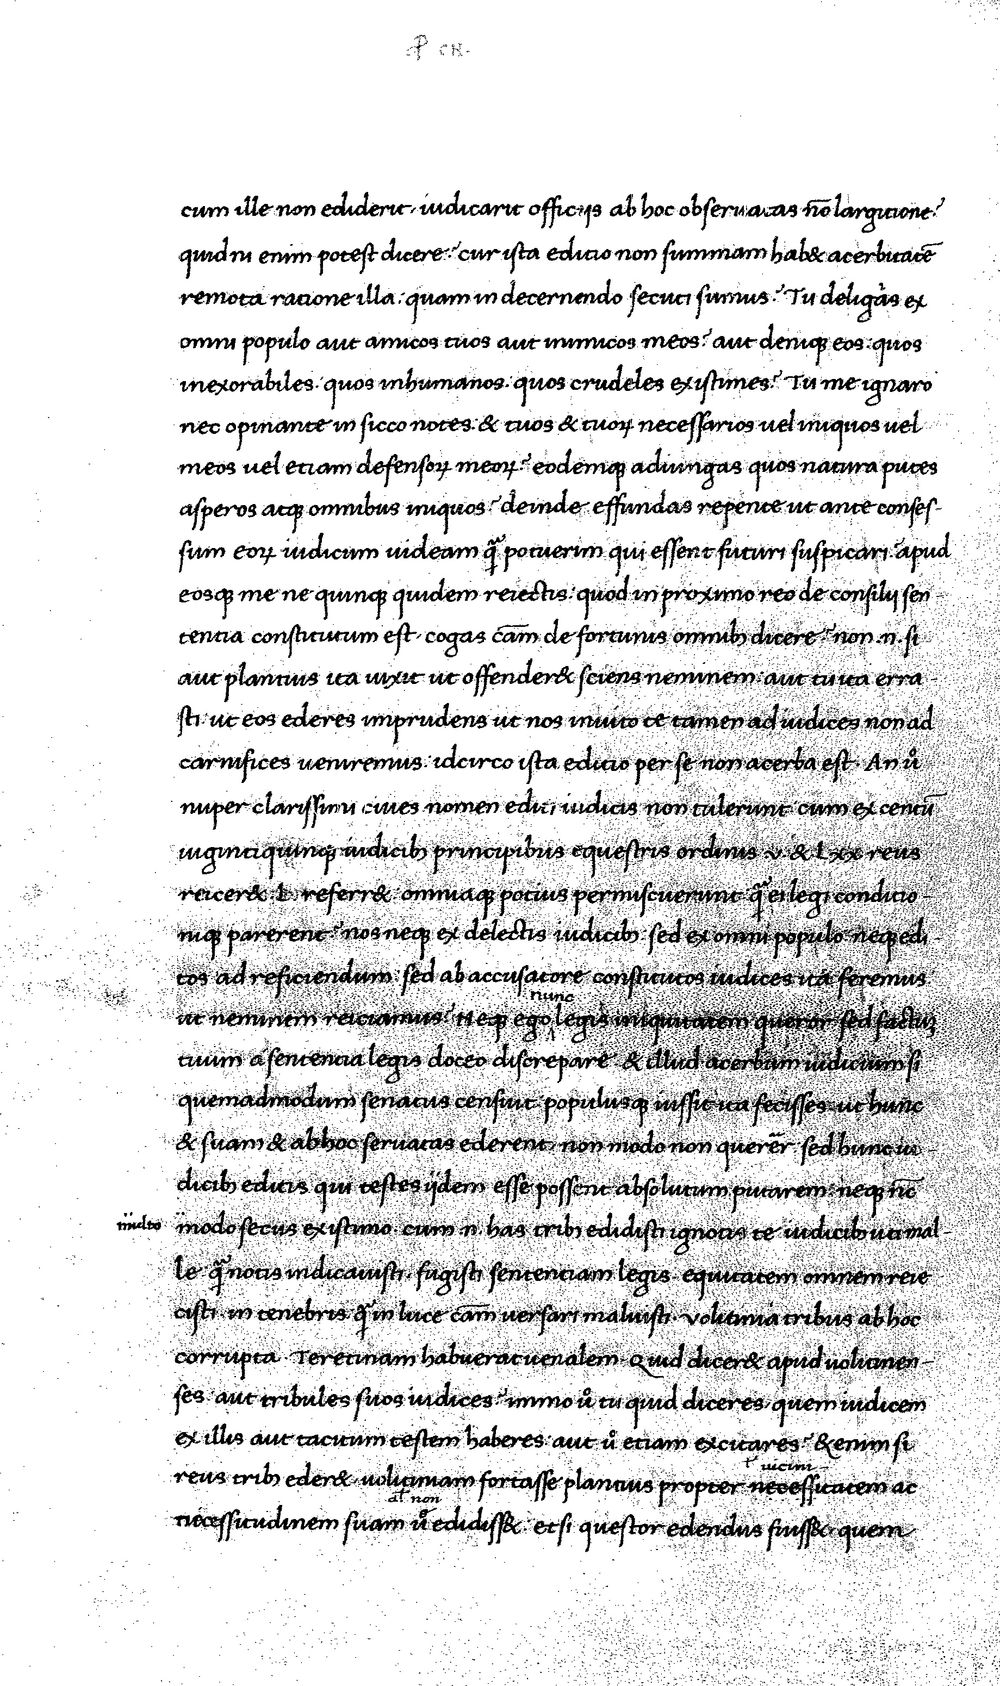 cum ille non ediderit, iudicarit officiis ab hoc obseruatas nō largitione?
quid ni enim potest dicere? cur ista editio non summam hab& acerbitatē
remota ratione illa: quam in decernendo secuti sumus? Tu deligas ex
omni populo aut amicos tuos aut inimicos meos? aut deniqꝫ eos: quos
inexorabiles: quos inhumanos: quos crudeles existimes? Tu me ignaro
nec opinante in sicco notes: & tuos & tuoꝝ necessarios uel iniquos uel
meos uel etiam defensoꝝ meoꝝ? eodemqꝫ adiungas quos natura putes
asperos atqꝫ omnibus iniquos? deinde effundas repente ut ante conses-
sum eoꝝ iudicum uideam q̄ꝫ potuerim qui essent futuri suspicari: apud
eosqꝫ me ne quinqꝫ quidem reiectis: quod in proximo reo de consilij sen-
tentia constitutum est· cogas cām de fortunis omnibꝫ dicere? non .n. si
aut plantius ita uixit ut offender& sciens neminem: aut tu ita erra-
sti: ut eos ederes imprudens ut nos inuito te tamen ad iudices non ad
carnifices ueniremus: idcirco ista editio per se non acerba est· An uͦ
nuper clarissimi ciues nomen editi iudicis non tulerunt: cum ex centū
uigintiquinqꝫ iudicibꝫ principibus equestris ordinis v & Lxx reus
reicer& L referr&: omniaqꝫ potius permiscuerunt q̄ꝫ ei legi conditio-
niqꝫ parerent? nos neqꝫ ex delectis iudicibꝫ: sed ex omni populo neqꝫ edi-
tos ad reficiendum: sed ab accusatore constitutos iudices ita feremus
nunc
ut neminem reiciamus? Neqꝫ ego legis iniquitatem queror sed factūꝫ
tuum a sententia legis doceo discrepare & illud acerbum iudicium si
quemadmodum senatus censuit populusqꝫ iussit ita fecisses: ut hunc
& suam & ab hoc seruatas ederent: non modo non querēr: sed hunc iu-
dicibꝫ editis qui testes ijdem esse possent absolutum putarem: neqꝫ nūc
multo modo secus existimo· cum .n. has tribꝫ edidisti ignotis te iudicibꝫ uti mal-
le q̄ꝫ notis indicauisti: fugisti sententiam legis: equitatem omnem reie
cisti: in tenebris q̄ꝫ in luce cām uersari maluisti· Voltinia tribus ab hoc
corrupta Teretinam habuerat uenalem· Quid dicer& apud uoltinien-
ses: aut tribules suos iudices? immo uͦ tu quid diceres: quem iudicem
ex illis aut tacitum testem haberes: aut uͦ etiam excitares? &enim si
uicini
reus tribꝫ eder& uoltiniam fortasse plantius propter necessitatem ac
al' non
necessitudinem suam uͦ edidiss&: etsi questor edendus fuiss&: quem